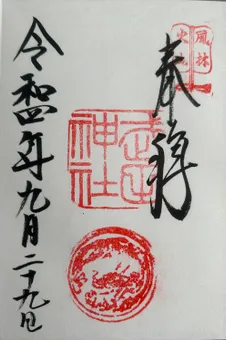 風林
火山
奉拝
武田
神社
令和四年九月二十九日